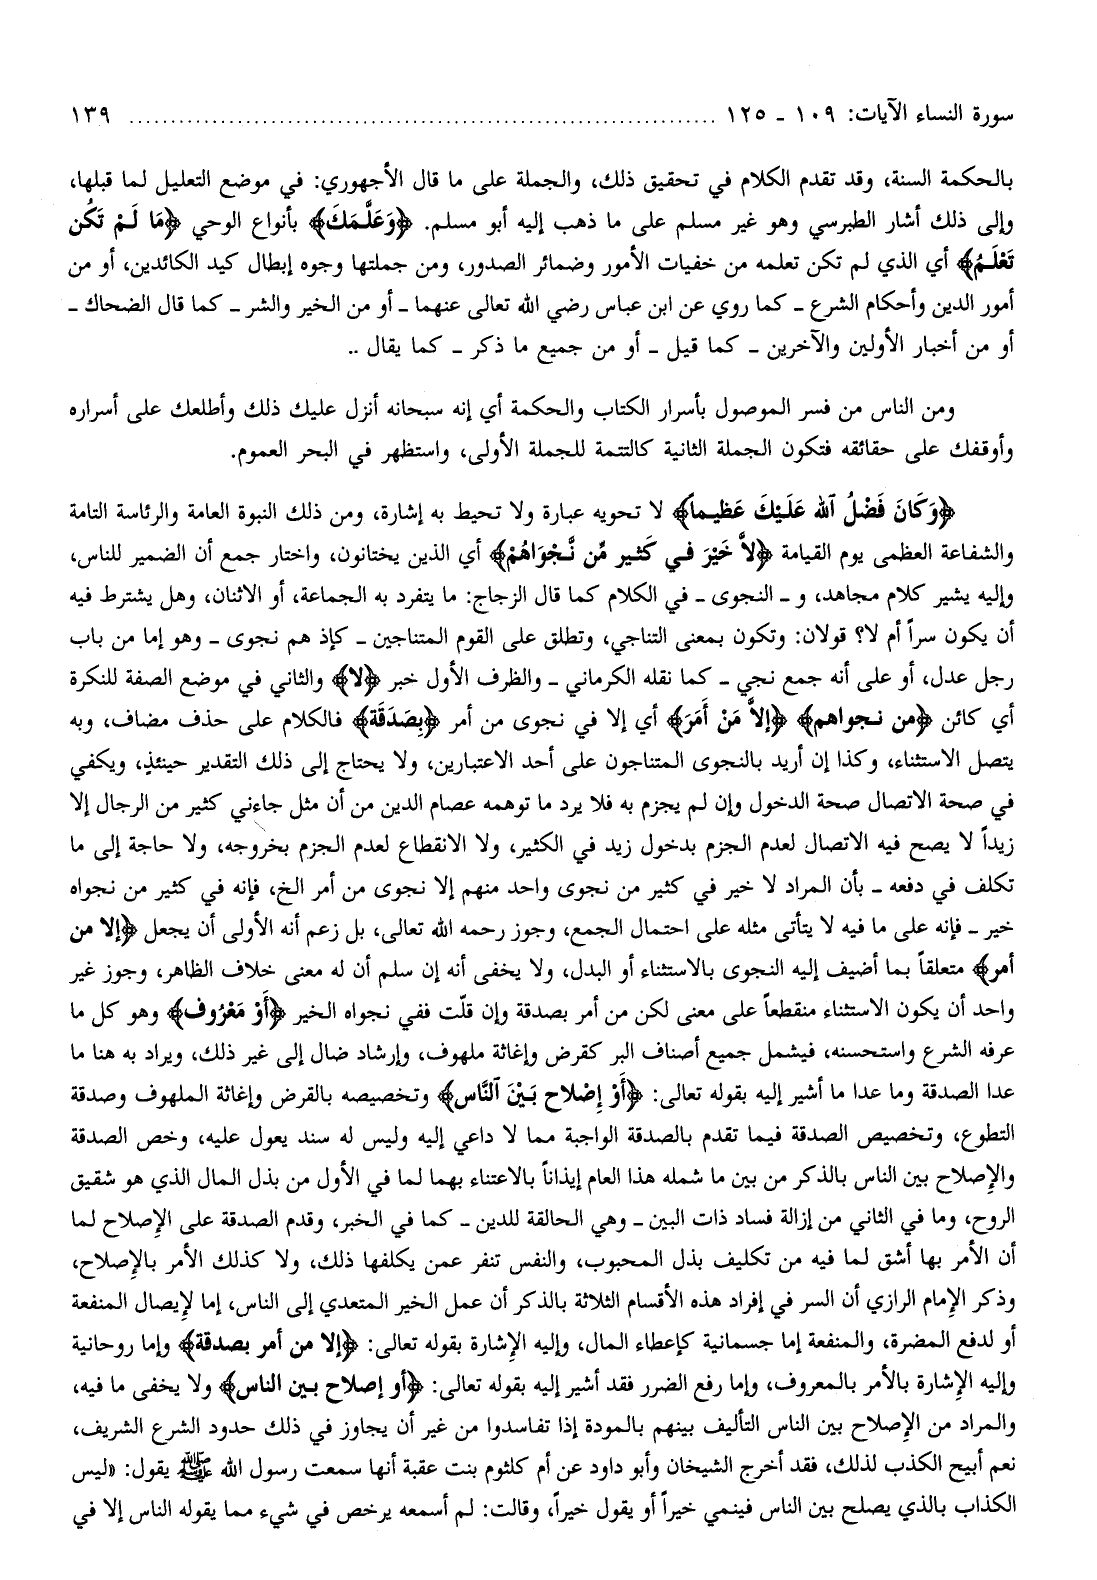 سورة النساء الآيات: ١٠٩ ـ ١٢٥ ........................................................................ ١٣٩
بالحكمة السنة، وقد تقدم الكلام في تحقيق ذلك، والجملة على ما قال الأجهوري: في موضع التعليل لما قبلها،
وإلى ذلك أشار الطبرسي وهو غير مسلم على ما ذهب إليه أبو مسلم. ﴿وَعَلَّمَكَ﴾ بأنواع الوحي ﴿مَا لَمْ تَكُن
تَعْلَمُ﴾ أي الذي لم تكن تعلمه من خفيات الأمور وضمائر الصدور، ومن جملتها وجوه إبطال كيد الكائدين، أو من
أمور الدين وأحكام الشرع ـ كما روي عن ابن عباس رضي الله تعالى عنهما ـ أو من الخير والشر ـ كما قال الضحاك ـ
أو من أخبار الأولين والآخرين ـ كما قيل ـ أو من جميع ما ذكر ـ كما يقال ..
ومن الناس من فسر الموصول بأسرار الكتاب والحكمة أي إنه سبحانه أنزل عليك ذلك وأطلعك على أسراره
وأوقفك على حقائقه فتكون الجملة الثانية كالتتمة للجملة الأولى، واستظهر في البحر العموم.
﴿وَكَانَ فَضْلُ ٱلله عَلَيْكَ عَظِيماً﴾ لا تحويه عبارة ولا تحيط به إشارة، ومن ذلك النبوة العامة والرئاسة التامة
والشفاعة العظمى يوم القيامة ﴿لاَّ خَيْرَ في كَثير مِّن نَّجْوَاهُمْ﴾ أي الذين يختانون، واختار جمع أن الضمير للناس،
وإليه يشير كلام مجاهد، و ـ النجوى ـ في الكلام كما قال الزجاج: ما يتفرد به الجماعة، أو الاثنان، وهل يشترط فيه
أن يكون سراً أم لا؟ قولان: وتكون بمعنى التناجي، وتطلق على القوم المتناجين ـ كإذ هم نجوى ـ وهو إما من باب
رجل عدل، أو على أنه جمع نجي ـ كما نقله الكرماني ـ والظرف الأول خبر ﴿لا﴾ والثاني في موضع الصفة للنكرة
أي كائن ﴿من نجواهم﴾ ﴿إلاَّ مَنْ أَمَرَ﴾ أي إلا في نجوى من أمر ﴿بِصَدَقَة﴾ فالكلام على حذف مضاف، وبه
يتصل الاستثناء، وكذا إن أريد بالنجوى المتناجون على أحد الاعتبارين، ولا يحتاج إلى ذلك التقدير حينئذٍ، ويكفي
في صحة الاتصال صحة الدخول وإن لم يجزم به فلا يرد ما توهمه عصام الدين من أن مثل جاءني كثير من الرجال إلا
زيداً لا يصح فيه الاتصال لعدم الجزم بدخول زيد في الكثير، ولا الانقطاع لعدم الجزم بخروجه، ولا حاجة إلى ما
تكلف في دفعه ـ بأن المراد لا خير في كثير من نجوى واحد منهم إلا نجوى من أمر الخ، فإنه في كثير من نجواه
خير ـ فإنه على ما فيه لا يتأتى مثله على احتمال الجمع، وجوز رحمه الله تعالى، بل زعم أنه الأولى أن يجعل ﴿إلا من
أمر﴾ متعلقاً بما أضيف إليه النجوى بالاستثناء أو البدل، ولا يخفى أنه إن سلم أن له معنى خلاف الظاهر، وجوز غير
واحد أن يكون الاستثناء منقطعاً على معنى لكن من أمر بصدقة وإن قلّت ففي نجواه الخير ﴿أَوْ مَعْرُوف﴾ وهو كل ما
عرفه الشرع واستحسنه، فيشمل جميع أصناف البر كقرض وإغاثة ملهوف، وإرشاد ضال إلى غير ذلك، ويراد به هنا ما
عدا الصدقة وما عدا ما أشير إليه بقوله تعالى: ﴿أَوْ إِصْلاح بَيْنَ ٱلنَّاس﴾ وتخصيصه بالقرض وإغاثة الملهوف وصدقة
التطوع، وتخصيص الصدقة فيما تقدم بالصدقة الواجبة مما لا داعي إليه وليس له سند يعول عليه، وخص الصدقة
والإصلاح بين الناس بالذكر من بين ما شمله هذا العام إيذاناً بالاعتناء بهما لما في الأول من بذل المال الذي هو شقيق
الروح، وما في الثاني من إزالة فساد ذات البين ـ وهي الحالقة للدين ـ كما في الخبر، وقدم الصدقة على الإصلاح لما
أن الأمر بها أشق لما فيه من تكليف بذل المحبوب، والنفس تنفر عمن يكلفها ذلك، ولا كذلك الأمر بالإصلاح،
وذكر الإمام الرازي أن السر في إفراد هذه الأقسام الثلاثة بالذكر أن عمل الخير المتعدي إلى الناس، إما لإيصال المنفعة
أو لدفع المضرة، والمنفعة إما جسمانية كإعطاء المال، وإليه الإشارة بقوله تعالى: ﴿إلا من أمر بصدقة﴾ وإما روحانية
وإليه الإشارة بالأمر بالمعروف، وإما رفع الضرر فقد أشير إليه بقوله تعالى: ﴿أو إصلاح بين الناس﴾ ولا يخفى ما فيه،
والمراد من الإصلاح بين الناس التأليف بينهم بالمودة إذا تفاسدوا من غير أن يجاوز في ذلك حدود الشرع الشريف،
نعم أبيح الكذب لذلك، فقد أخرج الشيخان وأبو داود عن أم كلثوم بنت عقبة أنها سمعت رسول الله ﷺ يقول: «ليس
الكذاب بالذي يصلح بين الناس فينمي خيراً أو يقول خيراً، وقالت: لم أسمعه يرخص في شيء مما يقوله الناس إلا في